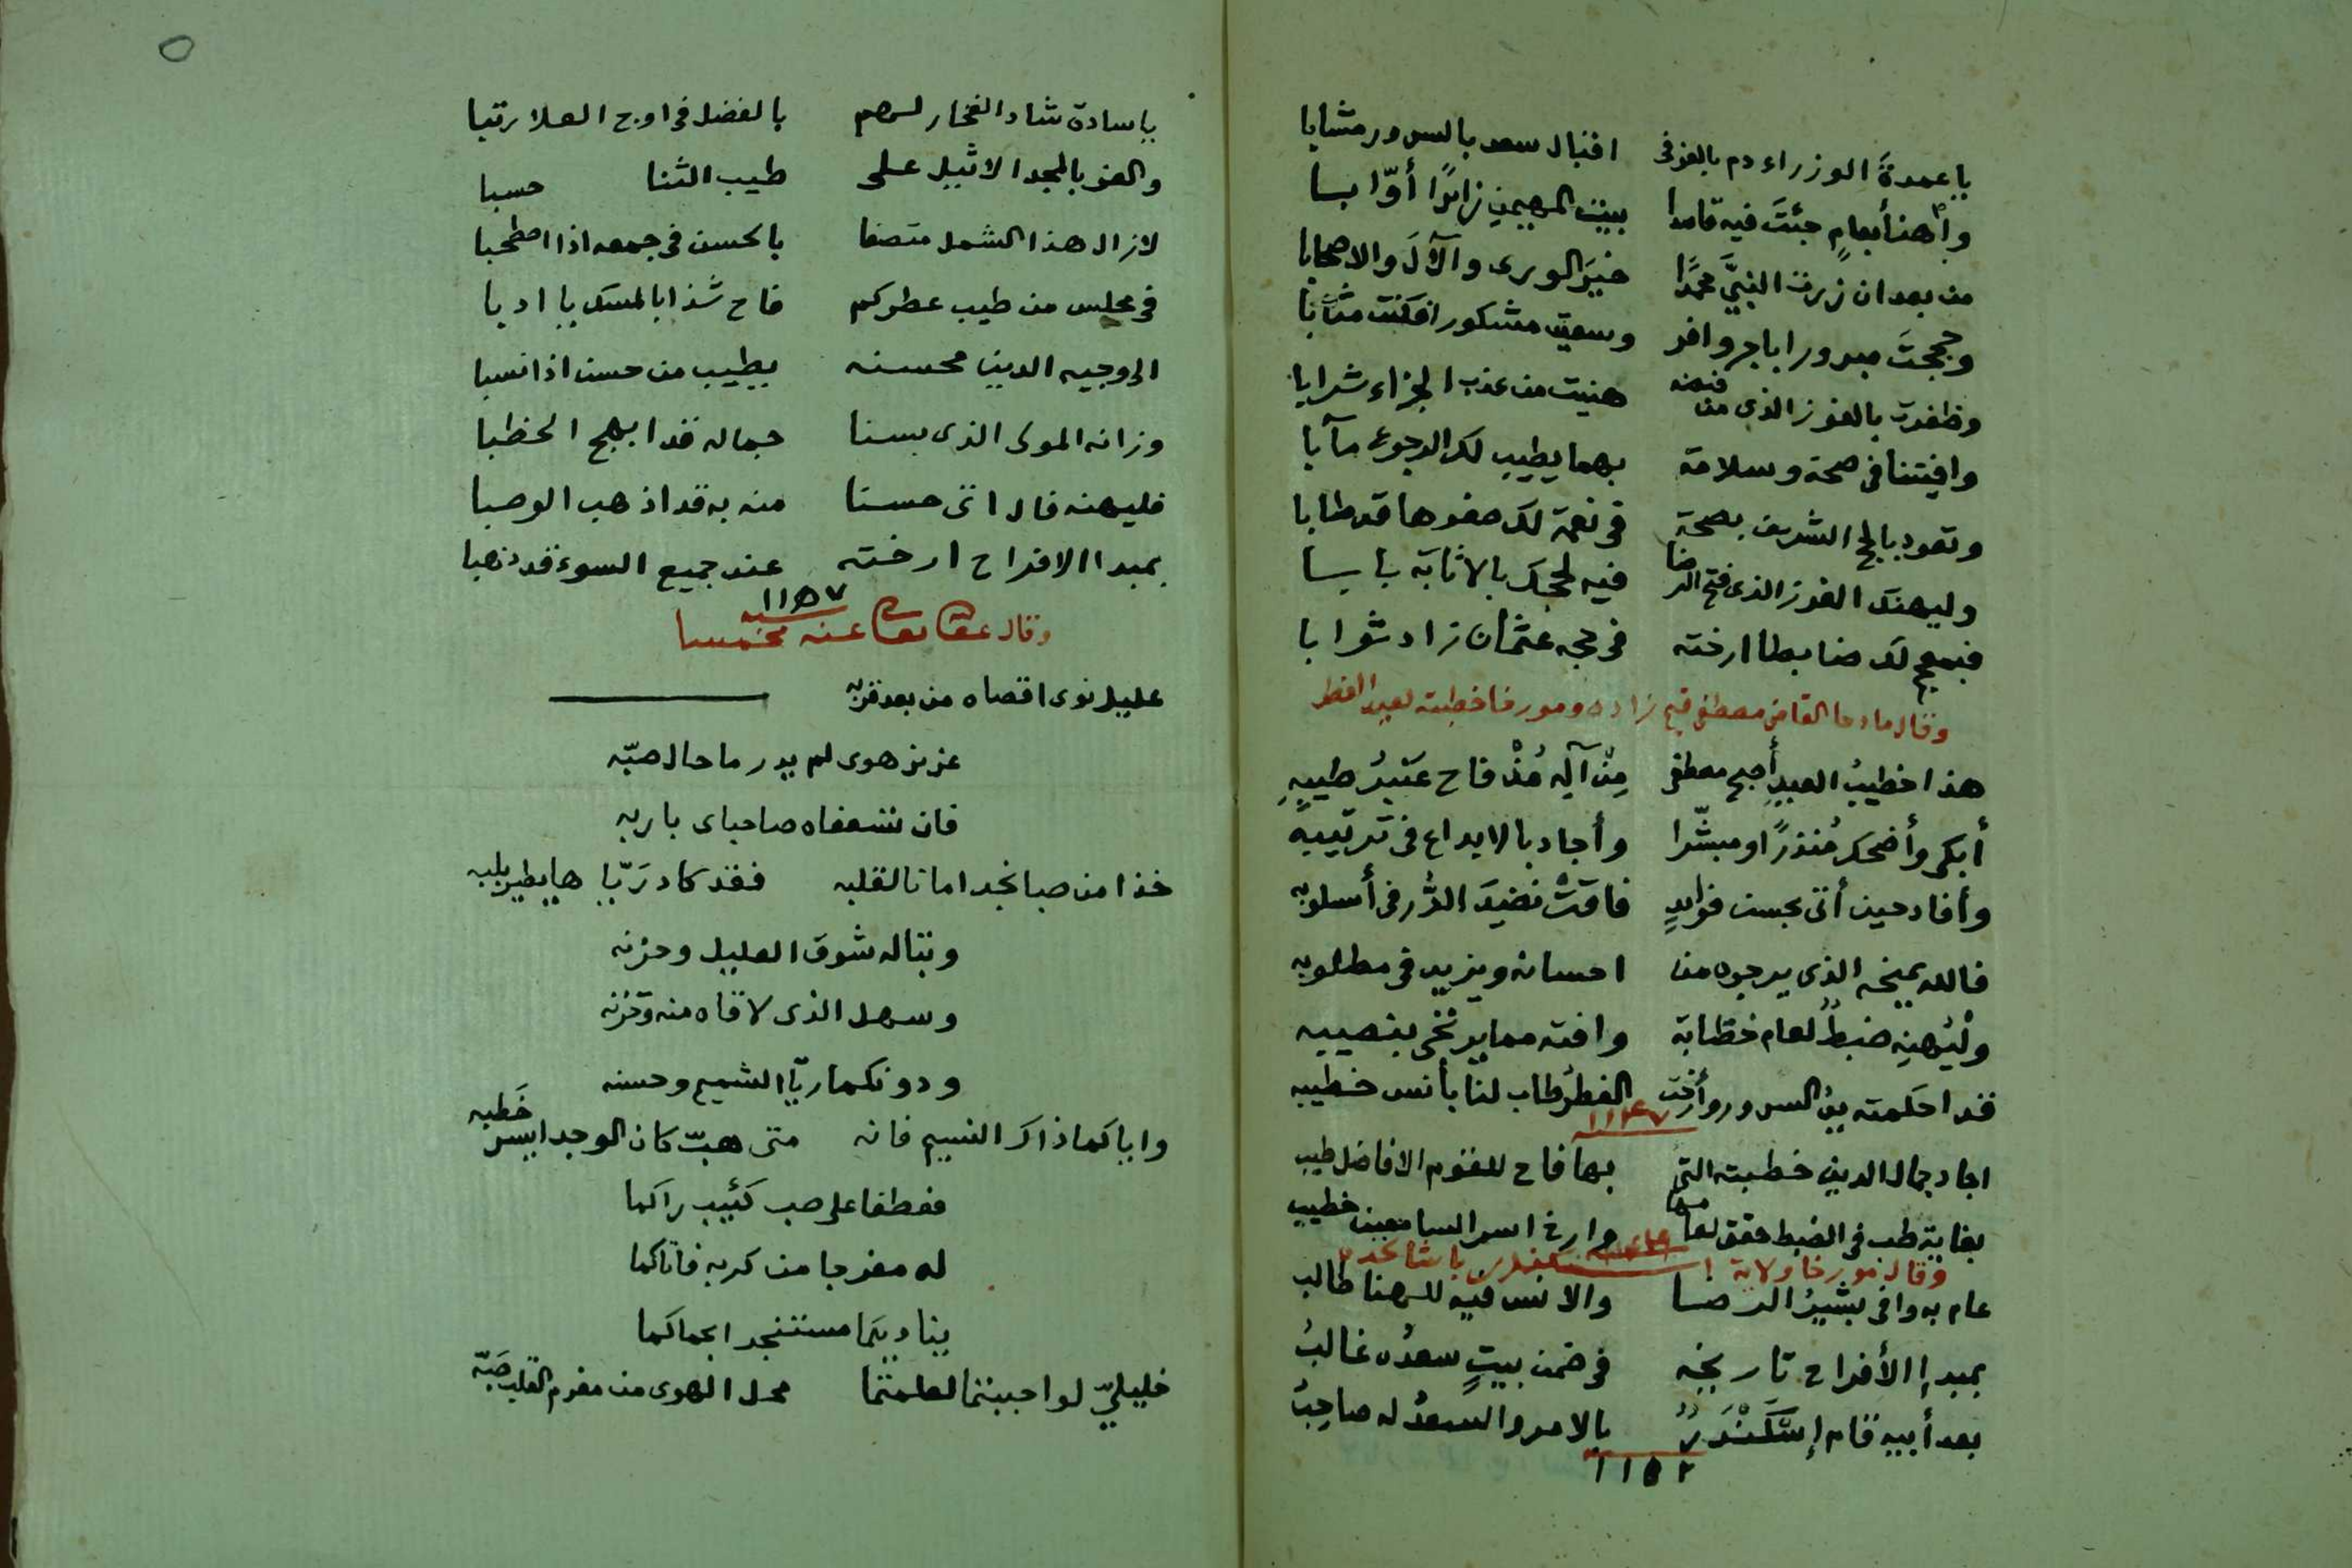 يا عمدة الوزراء دم بالعز في اقبال سعد بالسرور مشابا
واهنأ بعامٍ جئتَ فيه قاصدا ببيت المهيمن زائرًا أوّابا
من بعد ان زرت النبيَّ محمدًا خيرَ الورى والآلَ والاصحابا
وحججتَ مبرورا باجر وافر وسعيت مشكورا فكنت مثابا
وظفرت بالفوز الذي من فيضه هنيت من عذب الجزاء شرابا
وافيتنا في صحة وسلامة بهما يطيب لك الرجوع مآبا
وتعود بالحج الشريف بصحة في نعمة لك صفوها قد طابا
وليهنك الفوز الذي فتح الرضا فيه لحجك بالاثابة بابا
فبحج لك ضابطا ارخته في حجه عثمان زاد ثوابا
وقال مادحا القاضي مصطفى زاده ومورخا خطبته لعيد الفطر
هذا خطيبُ العيدِ أصبح مصطفى مِنْ آلِه مُذْ فاح عَنْبرُ طيبِهِ
أبكى وأضحك مُنذرًا ومبشّرا وأجاد بالابداع في ترتيبهِ
وأفاد حين أتى بحسن فوائدٍ فاقتْ نضيدَ الدُّر في أسلوبه
فالله يمنحه الذي يرجوه من احسانه ويزيد في مطلوبه
ولْيُهنِه ضبطٌ لعام خطابة وافته مما يرتجى بنصيبه
قد احكمته يدُ السرور وأرخت الفطرُ طاب لنا بأنس خطيبه
١١٤٧
اجاد جمال الدين خطبته التي بها فاح للقوم الافاضل طيب
بغاية طب في الضبط حقق لعامها وارخ اسر السامعين خطيب
وقال مورخا ولاية
عام به وافى بشيرُ الرضا والانس فيه للهنا طالب
بمبدإ الأفراح تاريخه في ضمن بيتٍ سعدُه غالبُ
بعد أبيه قام إسْكَنْدَرُ بالامر والسعدُ له صاحِبُ
١١٥٢
يا سادة شاد الفخار لهم بالفضل في اوج العلا رتبا
والعز بالمجد الاثيل على طيب الثنا حسبا
لازال هذا الشمل متصفا بالحسن في جمعه اذا اصطحبا
في مجلس من طيب عطركم فاح شذا بالمسك يا ادبا
الى وجيه الدين محسنه يطيب من حسن اذا نسبا
وزانه المولى الذي بسنا جماله قد ابهج الخطبا
فليهنه فال اتى حسنا منه به قد اذهب الوصبا
بمبدا الافراح ارخته عند جميع السوء قد ذهبا
١١٥٧
وقال عفا الله عنه مخمسا
عليل نوى اقصاه من بعد قربه
عزيز هوى لم يدر ما حال صبّه
فان تسعفاه صاحباى باربه
خذا من صبا نجد امانا لقلبه فقد كاد رَيّاها يطير بلبه
وبثا له شوق العليل وحزنه
وسهل الذي لاقاه منه وحزنه
ودونكما ريّا الشميم وحسنه
واياكما ذاك النسيم فانه متى هبّ كان الوجد ايسر خَطبه
فعطفا على صب كئيب راكما
له مفرجا من كربه فاتاكما
يناديكما مستنجدا بحماكما
خليليّ لو احببتما لعلمتما محل الهوى من مغرم القلب صَبّه